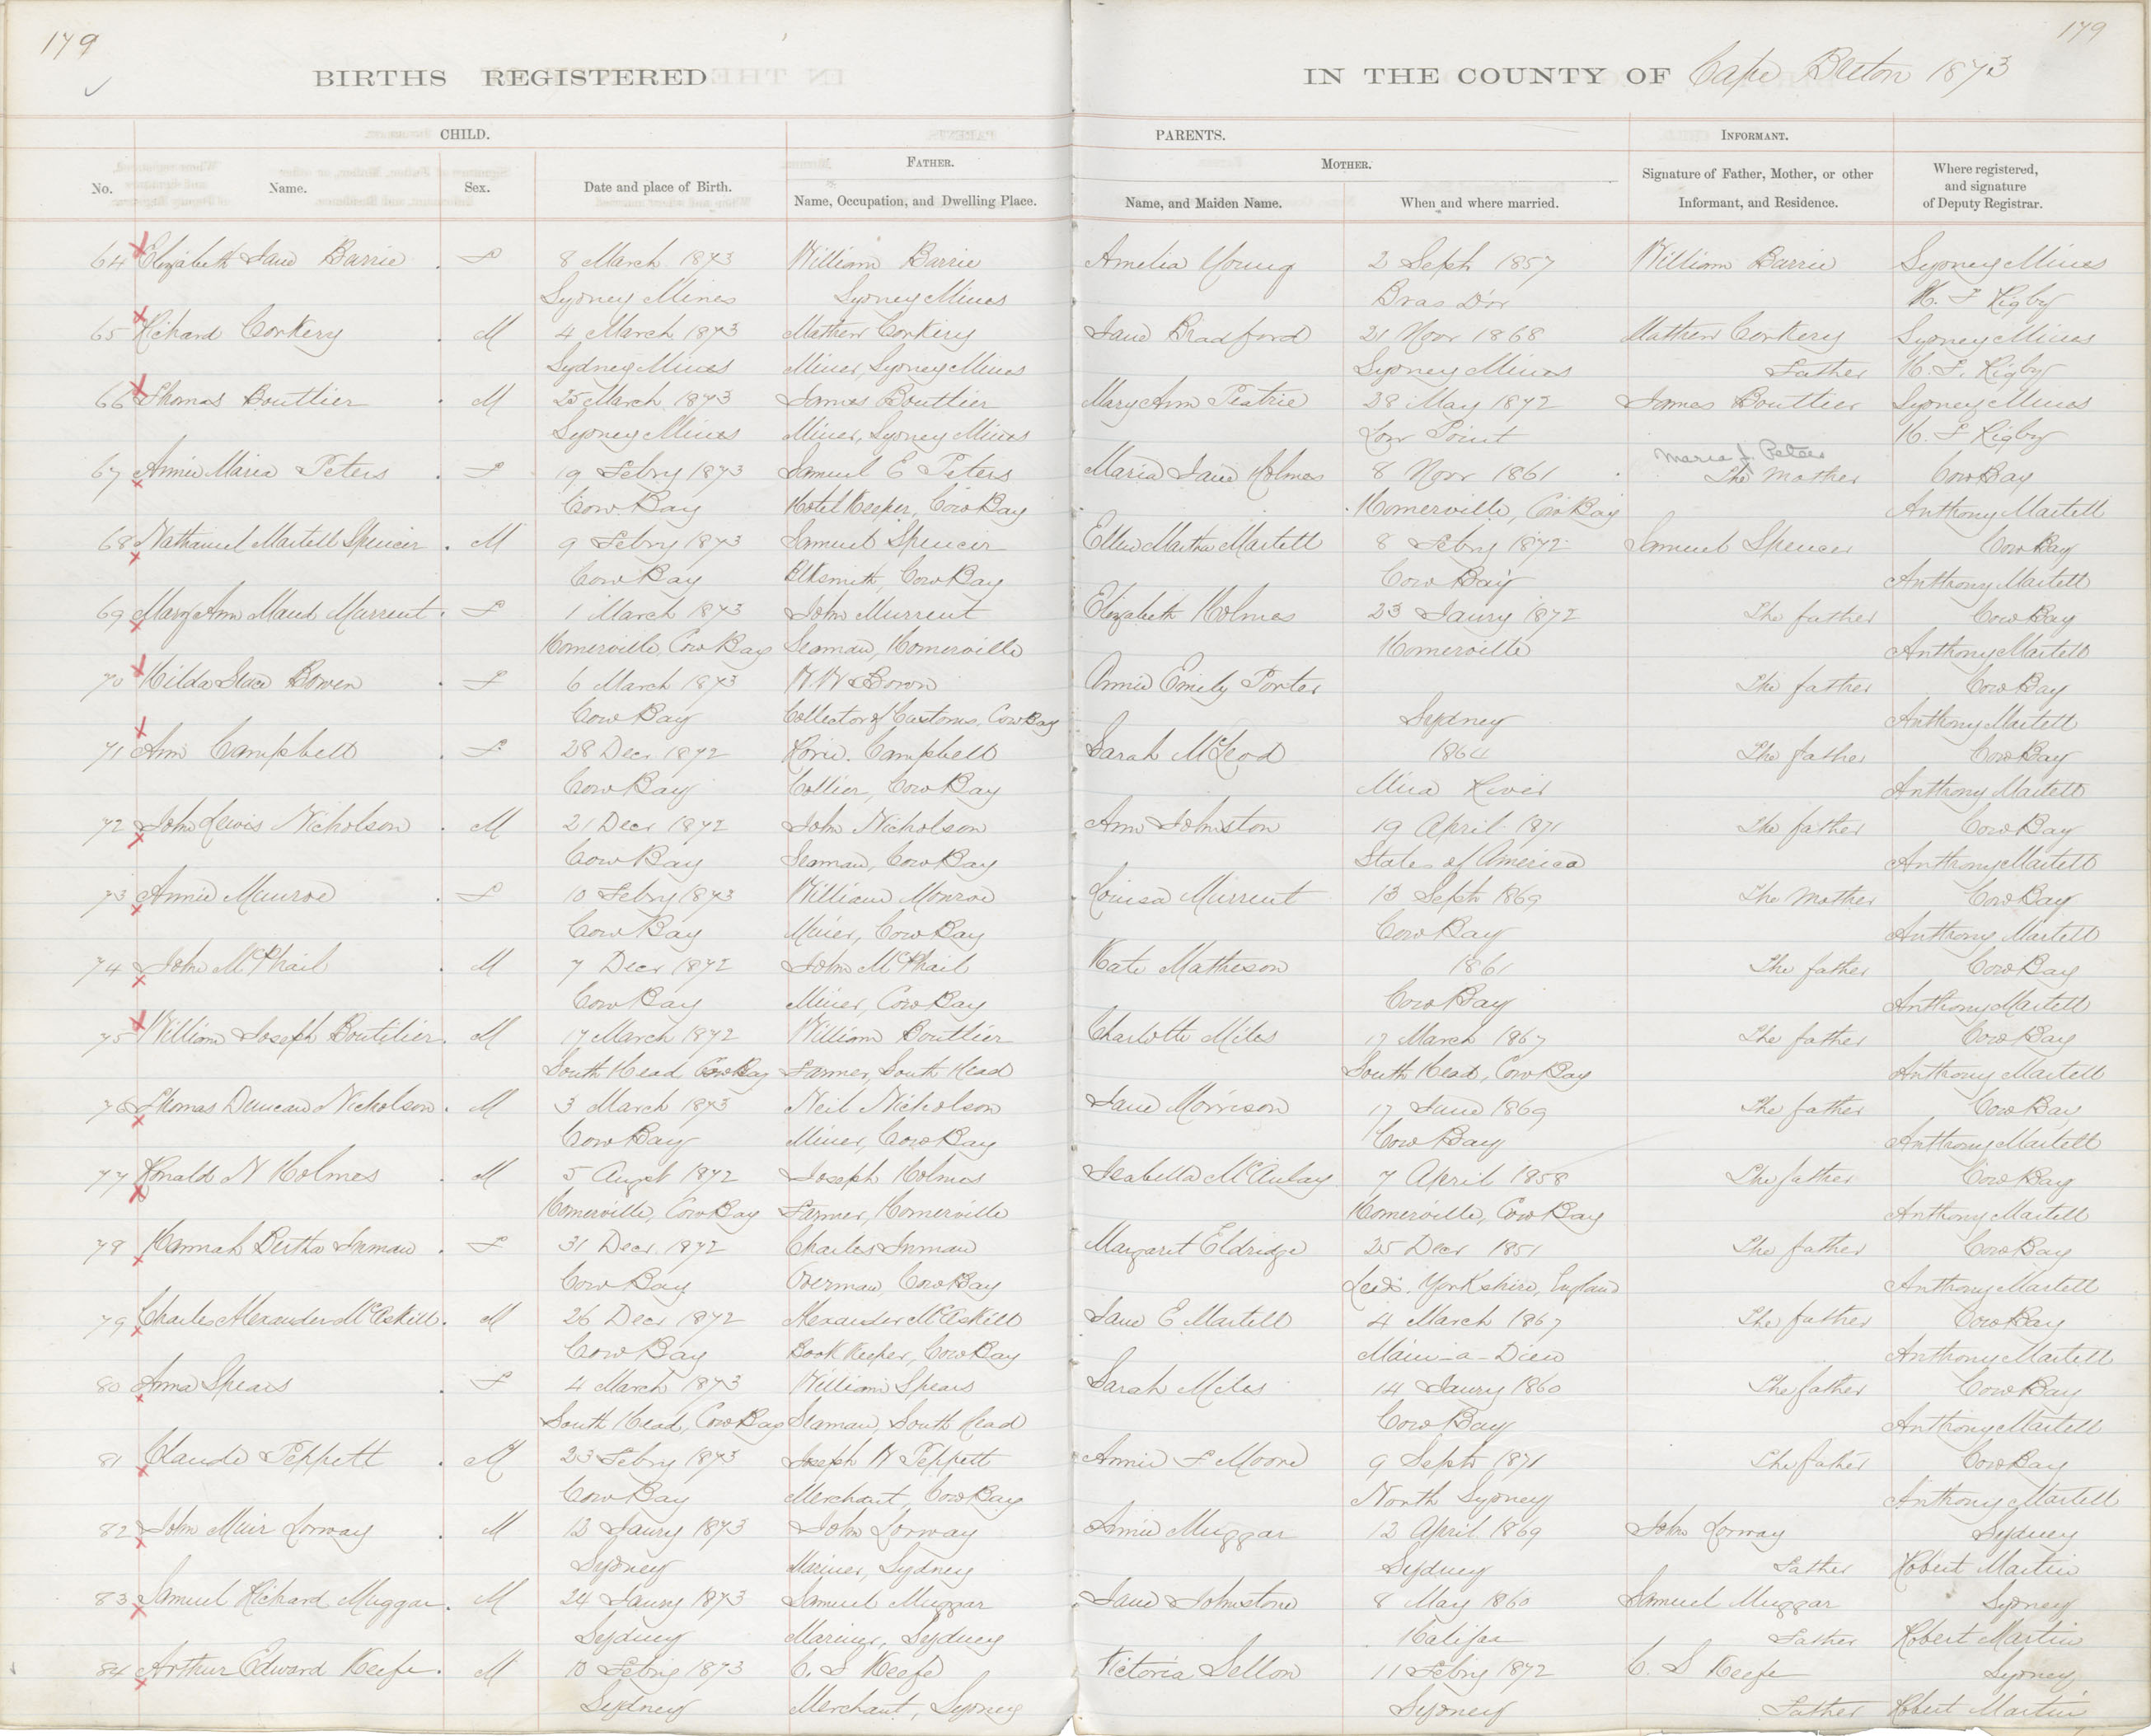 179
179
BIRTHS REGISTERED
IN THE COUNTY OF Cape Breton 1873
CHILD.
PARENTS.
INFORMANT.
FATHER.
MOTHER.
No.
Name.
Sex.
Date and place of Birth.
Name, Occupation, and Dwelling Place.
Name, and Maiden Name.
When and where married.
Signature of Father, Mother, or other
Informant, and Residence.
Where registered,
and signature
of Deputy Registrar.
64 Elizabeth Jane Barrie . F 8 March 1873 William Barrie Amelia Young 2 Sept 1857 William Barrie Sydney Mines
Sydney Mines Sydney Mines Bras D'or H. F Rigby
65 Richard Corkery . M 4 March 1873 Mathew Corkery Jane Bradford 21 Novr 1868 Mathew Corkery Sydney Mines
Sydney Mines Miner, Sydney Mines Sydney Mines Father H. F. Rigby
66 Thomas Bouttier . M 25 March 1873 James Bouttier Mary Ann Peatrie 28 May 1872 James Bouttier Sydney Mines
Sydney Mines Miner, Sydney Mines Low Point H. F Rigby
Maria J. Peters
67 Annie Maria Peters . F 19 Febry 1873 Samuel E Peters Maria Jane Holmes 8 Novr 1861 The Mother Cow Bay
Cow Bay Hotel Keeper, Cow Bay Homerville, Cow Bay Anthony Martell
68 Nathaniel Martell Spencer . M 9 Febry 1873 Samuel Spencer Ellen Martha Martell 8 Febry 1872 Samuel Spencer Cow Bay
Cow Bay Blksmith, Cow Bay Cow Bay Anthony Martell
69 Mary Ann Maud Murrent . F 1 March 1873 John Murrent Elizabeth Holmes 23 Jaury 1872 The father Cow Bay
Homerville, Cow Bay Seaman, Homerville Homerville Anthony Martell
70 Hilda Bowen . F 6 March 1873 Annie Emily Porter The father Cow Bay
Cow Bay Collector of Customs, Cow Bay Sydney Anthony Martell
71 Ann Campbell . F 28 Decr 1872 Campbell Sarah McLeod 1864 The father Cow Bay
Cow Bay Collier, Cow Bay Mira River Anthony Martell
72 John Lewis Nicholson . M 21 Decr 1872 John Nicholson Ann Johnston 19 April 1871 The father Cow Bay
Cow Bay Seaman, Cow Bay States of America Anthony Martell
73 Annie Munroe . F 10 Febry 1873 William Monroe Louisa Murrent 13 Sept 1869 The Mother Cow Bay
Cow Bay Miner, Cow Bay Cow Bay Anthony Martell
74 John McPhail . M 7 Decr 1872 John McPhail Kate Matheson 1861 The father Cow Bay
Cow Bay Miner, Cow Bay Cow Bay Anthony Martell
75 William Joseph Boutilier . M 17 March 1872 William Bouttier Charlotte Miles 17 March 1867 The father Cow Bay
South Head Cow Bay Farmer, South Head South Head, Cow Bay Anthony Martell
76 Thomas Duncan Nicholson . M 3 March 1873 Neil Nicholson Jane Morrison 17 June 1869 The father Cow Bay
Cow Bay Miner, Cow Bay Cow Bay Anthony Martell
77 Ronald N Holmes . M 5 Augst 1872 Joseph Holmes Isabella McAulay 7 April 1858 The father Cow Bay
Homerville, Cow Bay Farmer, Homerville Homerville, Cow Bay Anthony Martell
78 Hannah Bertha Inman . F 31 Decr 1872 Charles Inman Margaret Eldridge 25 Decr 1851 The father Cow Bay
Cow Bay Overman, Cow Bay Leeds. Yorkshire, England Anthony Martell
79 Charles Alexander McAskill . M 26 Decr 1872 Alexander McAskill Jane E Martell 4 March 1867 The father Cow Bay
Cow Bay Book Keeper, Cow Bay Main-a-Dieu Anthony Martell
80 Anna Spears . F 4 March 1873 William Spears Sarah Miles 14 Jaury 1860 The father Cow Bay
South Head, Cow Bay Seaman, South Head Cow Bay Anthony Martell
81 Claude Peppett . M 23 Febry 1873 Joseph W Peppett Annie F Moore 9 Sept 1871 The father Cow Bay
Cow Bay Merchant, Cow Bay North Sydney Anthony Martell
82 John Muir Lorway . M 12 Jaury 1873 John Lorway Annie Muggar 12 April 1869 John Lorway Sydney
Sydney Mariner, Sydney Sydney Father Robert Martin
83 Samuel Richard Muggar . M 24 Jaury 1873 Samuel Muggar Jane Johnstone 8 May 1860 Samuel Muggar Sydney
Sydney Mariner, Sydney Halifax Father Robert Martin
84 Arthur Edward Keefe . M 10 Febry 1873 C. S Keefe Victoria Sellon 11 Febry 1872 C. S Keefe Sydney
Sydney Merchant, Sydney Sydney Father Robert Martin